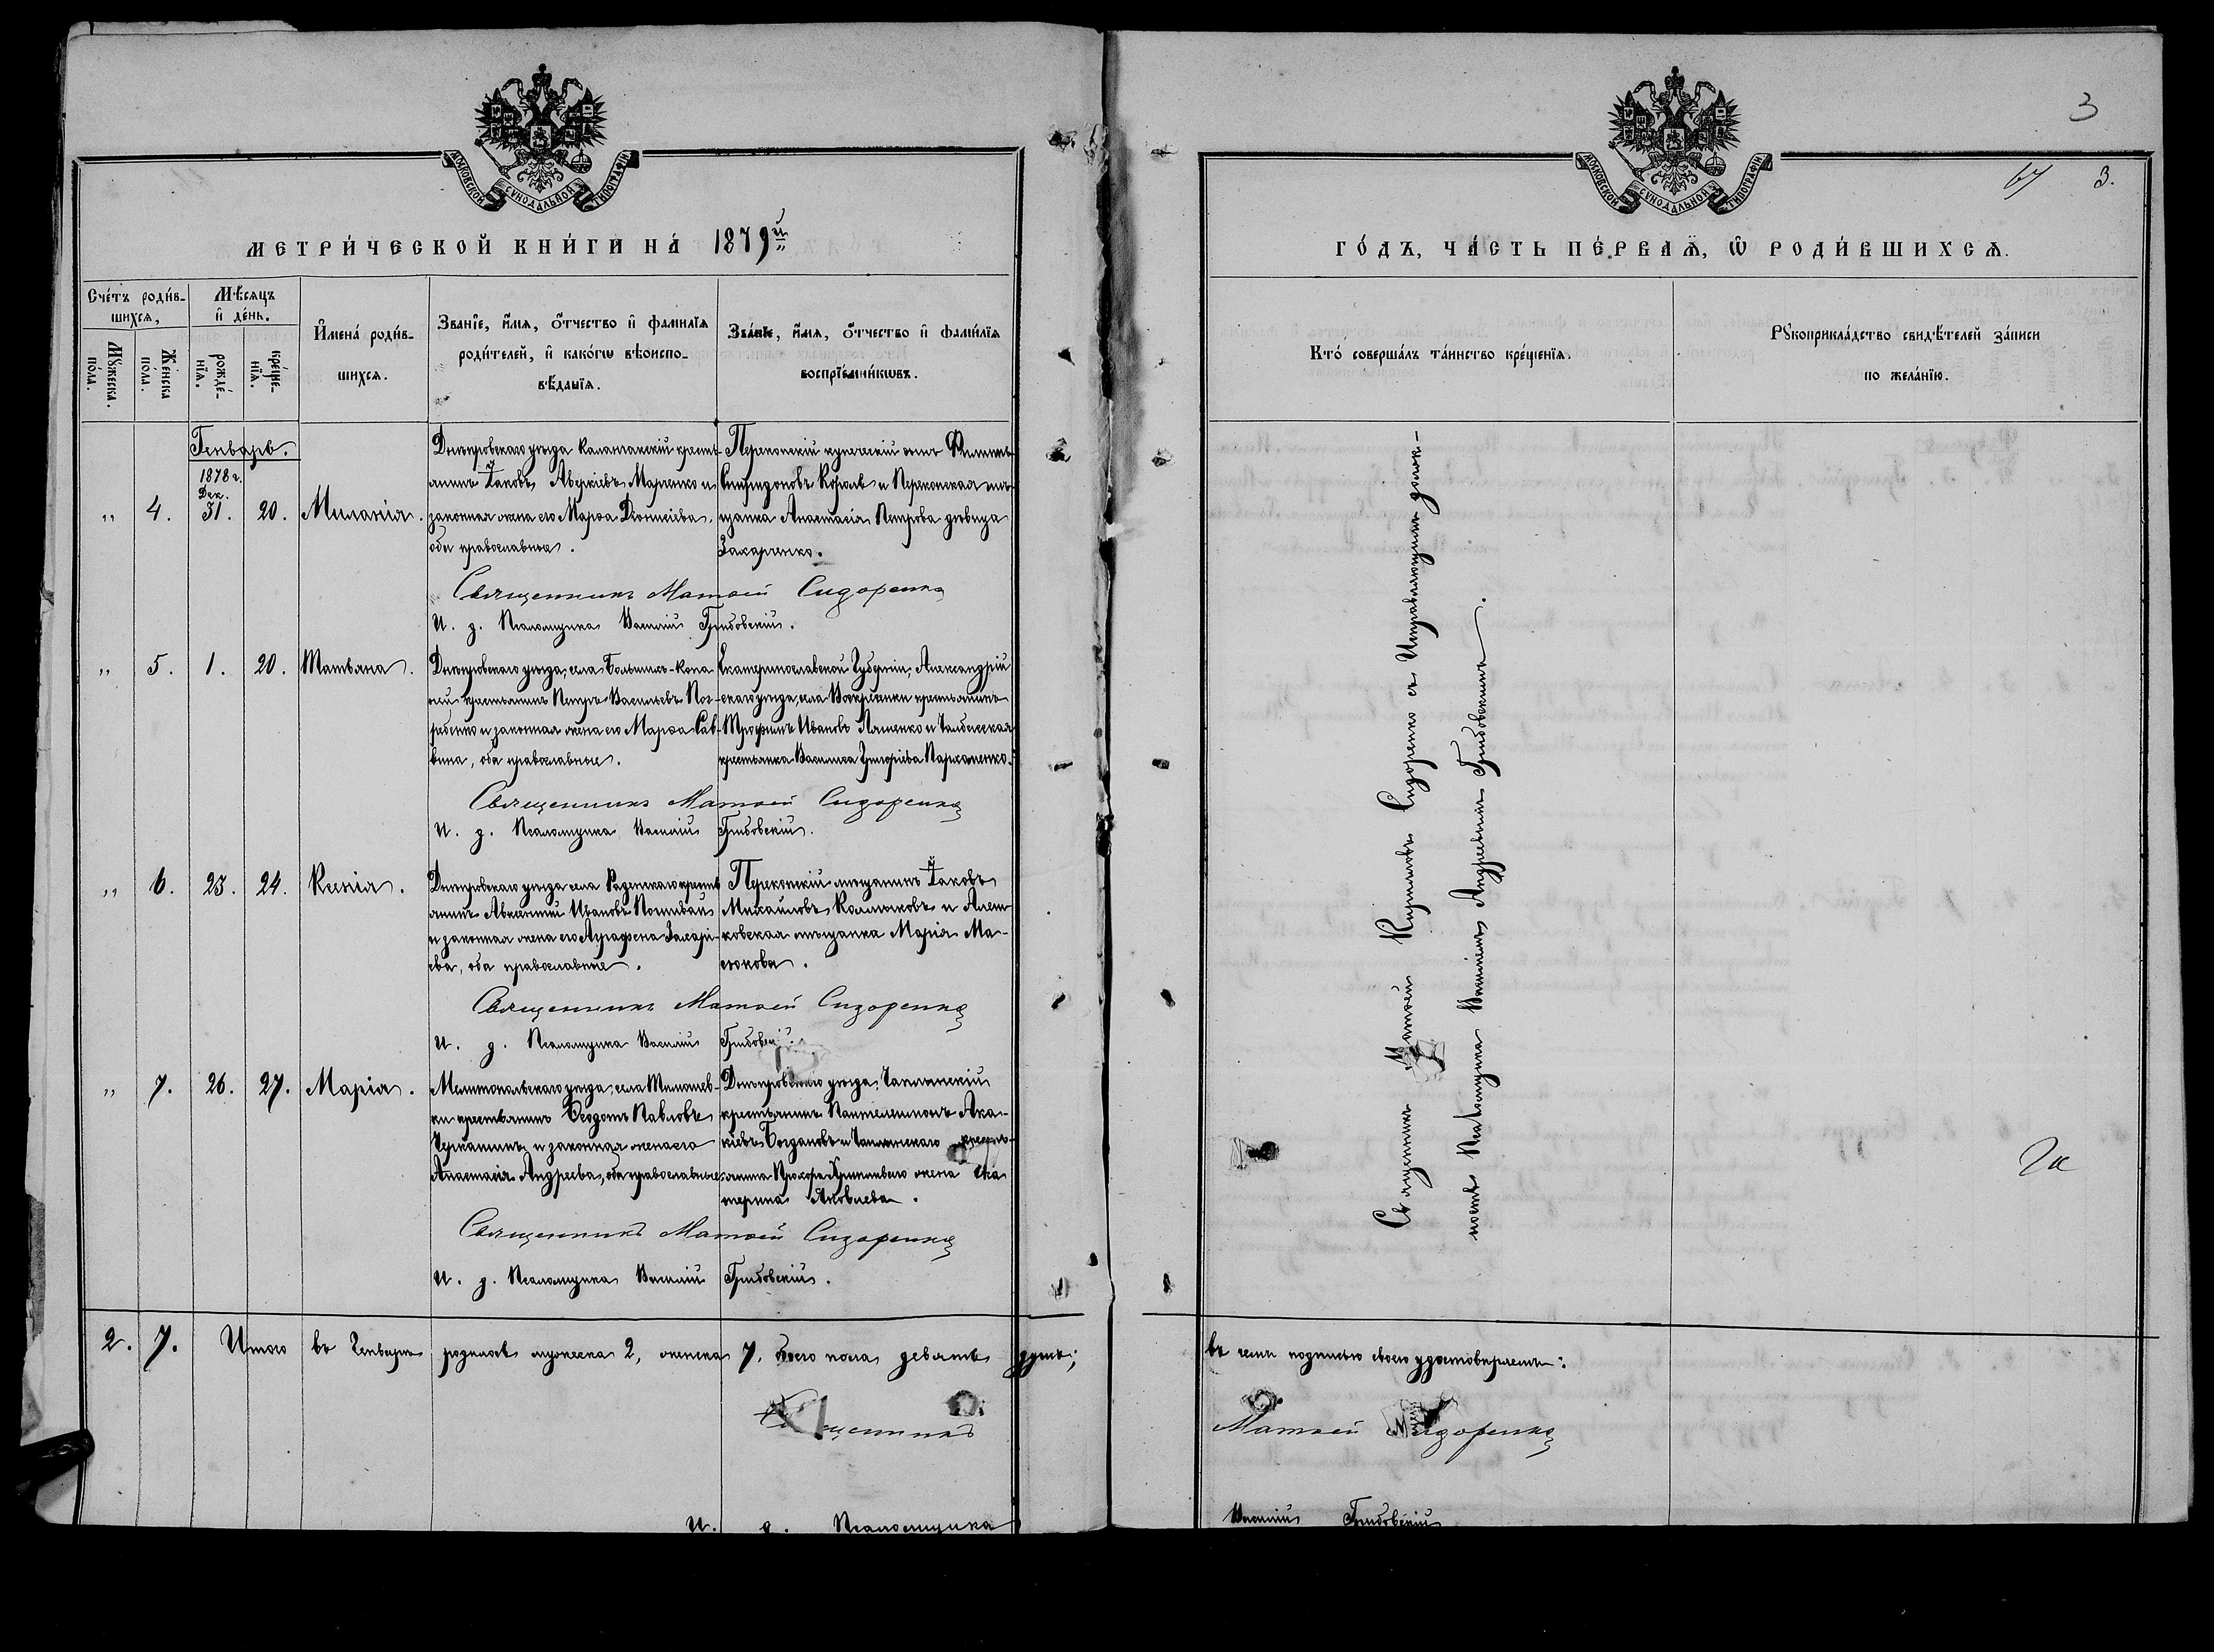 МОСКОВСКОЙ СУНОДАЛЬНОЙ ТИПОГРАФІИ
МЕТРИ́ЧЕСКОЙ КНИ́ГИ НА́ 1879й
Сче́тъ роди́в-
шихся,
Мꙋжеска
по́ла.
Же́нска
по́ла.
Мѣ́сяцъ
и҆ де́нь.
рожде́-
нїя.
креще́-
нїя.
И҆мена̀ роди́в-
шихся.
Зва́нїе, и҆́мя, о҆́тчество и҆ фами́лїя
роди́телей, и҆ како́гѡ вѣроиспо-
вѣ́данїя.
Зва́нїе, и҆́мя, о҆́тчество и҆ фами́лїя
воспрїе́мникѡвъ.
Генварь.
1878 г.
Дек.
„ 4. 31. 20. Миланія.
Днепровскаго уезда Каланчакскій кресть-
янинъ Іаковъ Аверкіевъ Марченко и
законная жена его Марѳа Діонисіева,
оба православные.
Перекопскій купеческій сынъ Филиппъ
Спиридоновъ Король и Перекопская мѣ-
щанка Анастасія Петрова девица
Захарченко.
Священникъ Матѳей Сидоренко
И. д. Псаломщика Василій Грибовскій.
„ 5. 1. 20. Татьяна.
Днепровскаго уезда, села Большихъ-Копа-
ней крестьянинъ Петръ Васильевъ Пог-
ребенко и законная жена его Марѳа Сав-
вина, оба православные.
Екатеринославской Губерніи, Александрій
скаго уезда, села Воскресенки крестьянинъ
Трофимъ Ивановъ Ляшенко и Чалбасская
крестьянка Василиса Григоріева Пархоменко.
Священникъ Матѳей Сидоренко
И. д. Псаломщика Василій Грибовскій.
„ 6. 23. 24. Ксенія.
Днепровскаго уезда села Раденскаго кресть
янинъ Авксентій Ивановъ Поливай
и законная жена его Аграфена Захарі-
ева, оба православные.
Перекопскій мещанинъ Іаковъ
Михайловъ Калмыковъ и Алеш-
ковская мещанка Марія Ма-
сюкова.
Священникъ Матѳей Сидоренко
И. д. Псаломщика Василій Грибовскій.
„ 7. 26. 27. Марія.
Мелитопольскаго уезда, села Тимошев-
ки крестьянинъ Ѳеодотъ Павловъ
и законная жена его
Анастасія Андреева, оба православные.
Днепровскаго уезда, Чаплинскій
крестьянинъ Пантелеимонъ Ака-
кіевъ Богдановъ и Чаплинскаго кресть-
янина Прохора жена Ека
терина Яковлева.
Священникъ Матѳей Сидоренко
И. д. Псаломщика Василій Грибовскій.
2. 7. Итого въ Генваре родилось мужеска 2, женска 7. обоего пола девять душъ;
Священникъ
И. д. Псаломщика
3
67 3.
МОСКОВСКОЙ СУНОДАЛЬНОЙ ТИПОГРАФІИ
ГО́ДЪ, ЧА́СТЬ ПЕ́РВАЯ, Ѡ҆ РОДИ́ВШИХСЯ.
Кто̀ соверша́лъ та́инство креще́нїя.
Рꙋкоприкла́дство свидѣ́телей за́писи
по жела́нїю.
Священникъ Матѳей Кирилловъ Сидоренко съ Исправляющимъ долж-
ность Псаломщика Василіемъ Андреевымъ Грибовскимъ.
въ чемъ подписью своею удостоверяемъ:
Матѳей Сидоренко
Василій Грибовскій